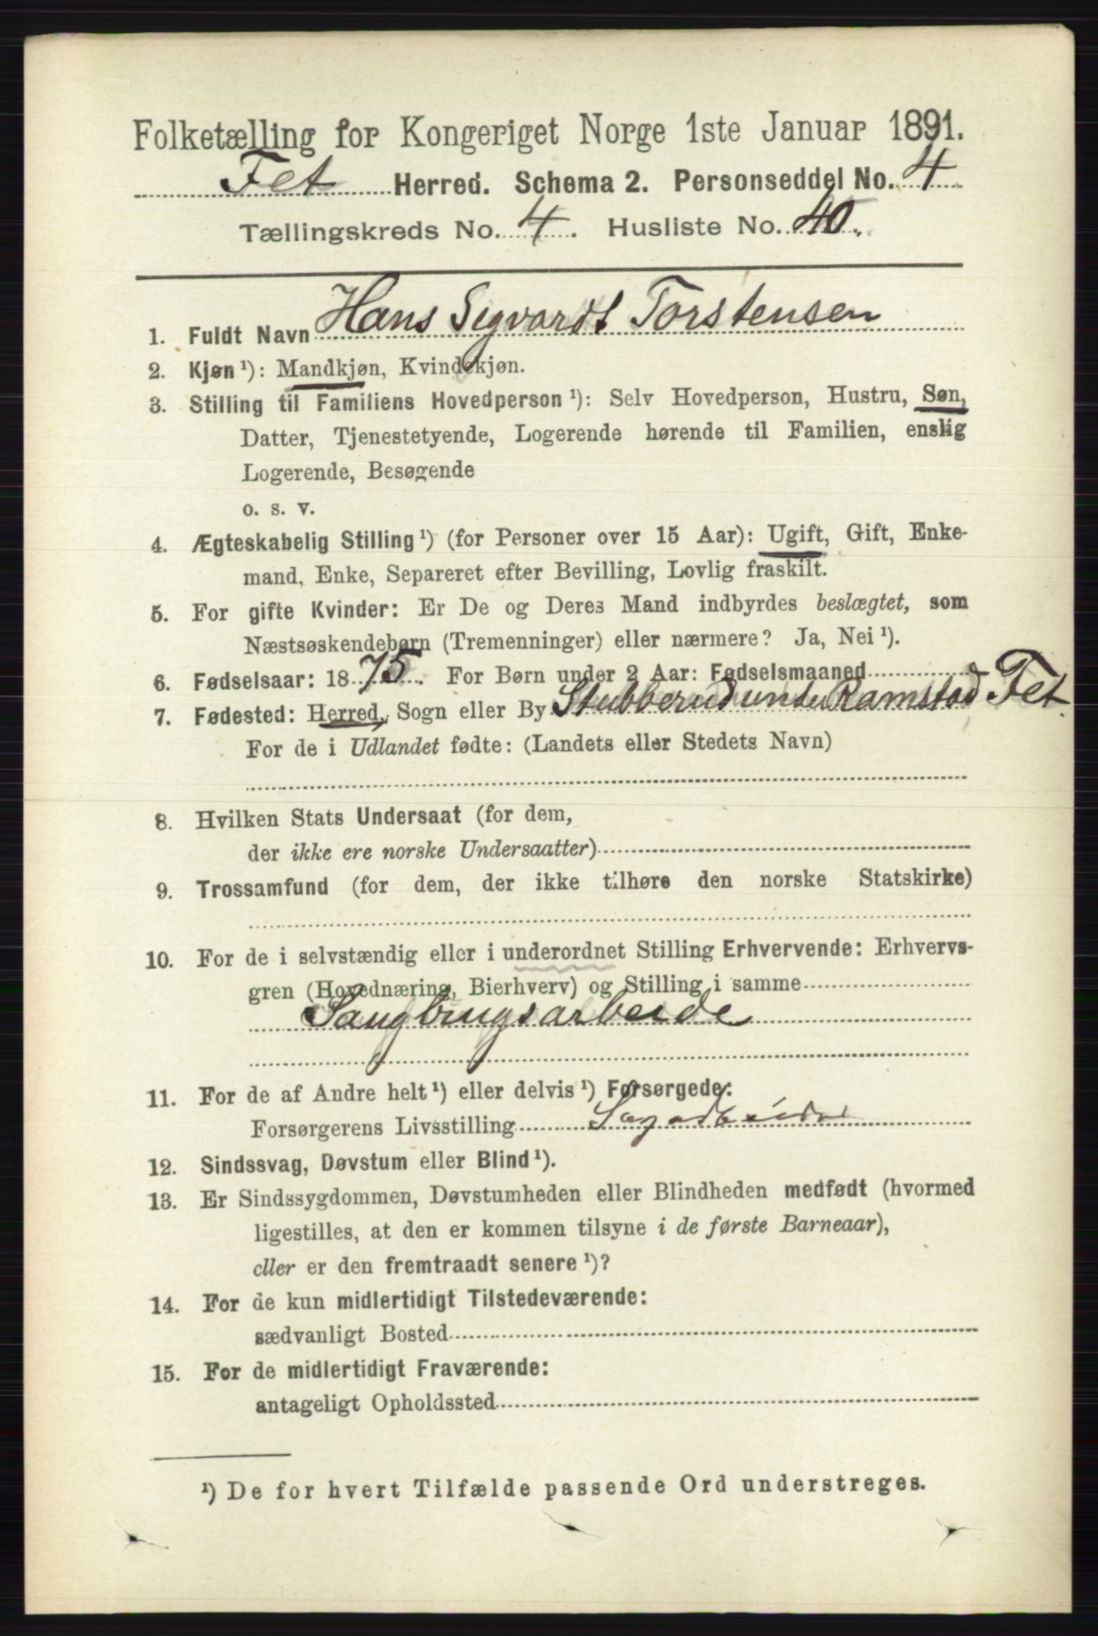 Folketælling for Kongeriget Norge 1ste Januar 1891.
Fet Herred. Schema 2. Personseddel No. 4
Tællingskreds No. 4. Husliste No. 40.
1. Fuldt Navn Hans Sigvardt Torstensen
2. Kjøn ¹): Mandkjøn, Kvindekjøn.
3. Stilling til Familiens Hovedperson ¹): Selv Hovedperson, Hustru, Søn,
Datter, Tjenestetyende, Logerende hørende til Familien, enslig
Logerende, Besøgende
o. s. v.
4. Ægteskabelig Stilling ¹) (for Personer over 15 Aar): Ugift, Gift, Enke-
mand, Enke, Separeret efter Bevilling, Lovlig fraskilt.
5. For gifte Kvinder: Er De og Deres Mand indbyrdes beslægtet, som
Næstsøskendebørn (Tremenninger) eller nærmere? Ja, Nei ¹).
6. Fødselsaar: 1875. For Børn under 2 Aar: Fødselsmaaned
7. Fødested: Herred, Sogn eller By Stubberud under Ramstad Fet
For de i Udlandet fødte: (Landets eller Stedets Navn)
8. Hvilken Stats Undersaat (for dem,
der ikke ere norske Undersaatter)
9. Trossamfund (for dem, der ikke tilhøre den norske Statskirke)
10. For de i selvstændig eller i underordnet Stilling Erhvervende: Erhvervs-
gren (Hovednæring, Bierhverv) og Stilling i samme
11. For de af Andre helt ¹) eller delvis ¹) Forsørgede:
Forsørgerens Livsstilling Sagarbeider
12. Sindssvag, Døvstum eller Blind ¹).
13. Er Sindssygdommen, Døvstumheden eller Blindheden medfødt (hvormed
ligestilles, at den er kommen tilsyne i de første Barneaar),
eller er den fremtraadt senere ¹)?
14. For de kun midlertidigt Tilstedeværende:
sædvanligt Bosted
15. For de midlertidigt Fraværende:
antageligt Opholdssted
¹) De for hvert Tilfælde passende Ord understreges.